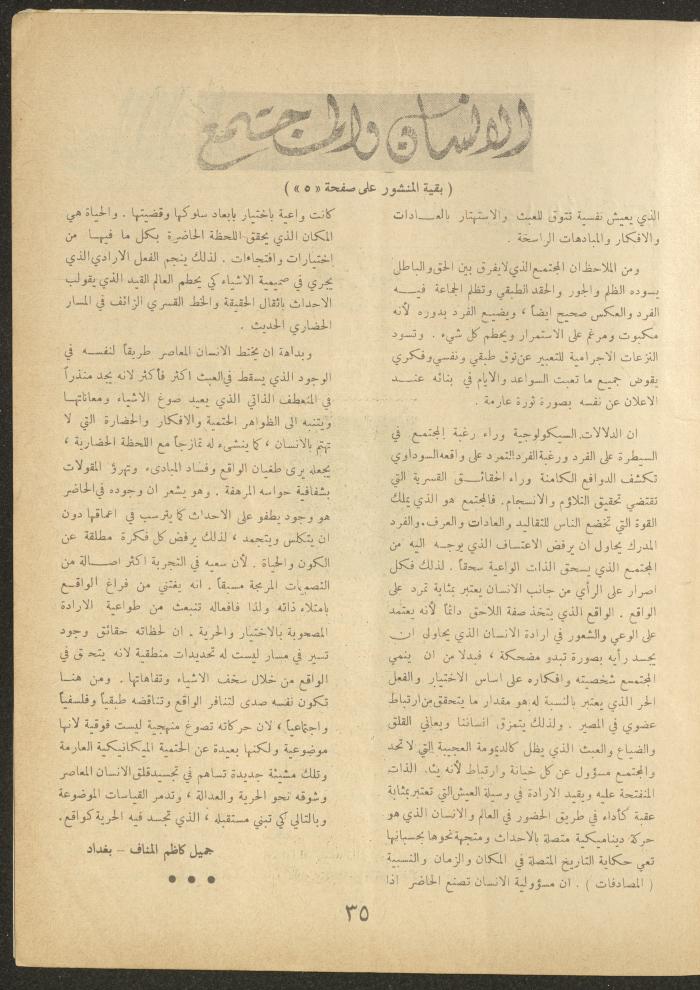 الانسان والمجتمع
( بقية المنشور على صفحة « ٥ » )
الذي يعيش نفسية تتوق للعبث والاستهتار بالعـادات
والافكار والمبادهات الراسخة .
ومن الملاحظ ان المجتمع الذي لا يفرق بين الحق والباطل
يسوده الظلم والجور والحقد الطبقي وتظلم الجماعة فيـــه
الفرد والعكس صحيح ايضاً ، ويضيـع الفرد بدوره لأنه
مكبوت ومرغم على الاستمرار ويحطم كل شيء . وتسود
النزعات الاجرامية للتعبير عن توق طبقي ونفسي وفكري
يقوض جميـع ما تعبت السواعد والايام في بنائه عنـــد
الاعلان عن نفسه بصورة ثورة عارمة .
ان الدلالات السيكولوجية وراء رغبة المجتمع في
السيطرة على الفرد ورغبة الفرد التمرد على واقعه السوداوي
تكشف الدوافع الكامنة وراء الحقائـــق القسرية التي
تقتضي تحقيق التلاؤم والانسجام. فالمجتمع هو الذي يملك
القوة التي تخضع الناس للتقاليد والعادات والعرف، والفرد
المدرك يحاول ان يرفض الاعتساف الذي يوجـه اليه من
المجتمـع الذي يسحق الذات الواعية سحقاً . لذلك فكل
اصرار على الرأي من جانب الانسان يعتبر بمثابة تمرد على
الواقع . الواقع الذي يتخذ صفة اللاحق دائماً لأنه يعتمد
على الوعي والشعور في ارادة الانسان الذي يحاول ان
يجسد رأيه بصورة تبدو مضحكة ، فبدلا من ان ينمي
المجتمـع شخصيته وافكاره على اساس الاختيار والفعل
الحر الذي يعتبر بالنسبة له هو مقدار ما يتحقق من ارتباط
عضوي في المصير . ولذلك يتمزق انساننا ويعاني القلق
والضياع والعبث الذي يظل كالديمومة العجيبة التي لا تحد
والمجتمع مسؤول عن كل خيانة وارتباط لأنه الذات
المنفتحة عليه ويقيد الارادة في وسيلة العيش التي تعتبر بمثابة
عقبة كأداء في طريق الحضور في العالم والانسان الذي هو
حركة ديناميكية متصلة بالاحداث ومتجهة نحوها بحسبانها
تعي حكاية التاريخ المتصلة في المكان والزمان والنسبية
( المصادفات ) . ان مسؤولية الانسان تصنع الحاضر اذا
كانت واعية باختيار بابعاد سلوكها وقضيتها . والحياة هي
المكان الذي يحقق اللحظة الحاضرة بكل ما فيهـا من
اختيارات وافتجاءات . لذلك ينجم الفعل الارادي الذي
يجري في صميمية الاشياء كي يحطم العالم القيد الذي يقولب
الاحداث باثقال الحقيقة والخط القسري الزائف في المسار
الحضاري الحديث .
وبداهة ان يختط الانسان المعاصر طريقاً لنفســه في
الوجود الذي يسقط في العبث اكثر فأكثر لانه يجد منذراً
في المنعطف الذاتي الذي يعيد صوغ الاشياء ومعاناتهـا
ويتنبه الى الظواهر الحتمية والافكار والحضارة التي لا
تهتم بالانسان ، كما ينشىء له تمازجاً مع اللحظة الحضارية ،
يجعله يرى طغيان الواقع وفساد المبادىء وتهرؤ المقولات
بشفافية حواسه المرهفة . وهو يشعر ان وجوده في الحاضر
هو وجود يطفو على الاحداث كما يترسب في اعماقها دون
ان يتكلس ويتجمد ، لذلك يرفض كل فكرة مطلقة عن
الكون والحياة . لأن سعيه في التجربة اكثر اصـالة من
التصميمات المبرمجة مسبقاً . انه يغتني من فراغ الواقـع
بامتلاء ذاته ولذا فافعاله تنبعث من طواعية الارادة
المصحوبة بالاختيار والحرية . ان لحظاته حقائق وجود
تسير في مسار ليست له تحديدات منطقية لانه يتحقق في
الواقع من خلال سخف الاشياء وتفاهاتها . ومن هنـا
تكون نفسه صدى لتنافر الواقع وتناقضه طبقياً وفلسفياً
واجتماعياً ، لان حركاته تصوغ منهجية ليست فوقية لانها
موضوعية ولكنها بعيدة عن الحتمية الميكانيكية العارمة
وتلك مشيئة جديدة تساهم في تجسيد قلق الانسان المعاصر
وشوقه نحو الحرية والعدالة ، وتدمر القياسات الموضوعة
وبالتالي كي تبني مستقبله ، الذي تجسد فيه الحرية كواقع.
جميل كاظم المناف – بغداد
● ● ●
٣٥